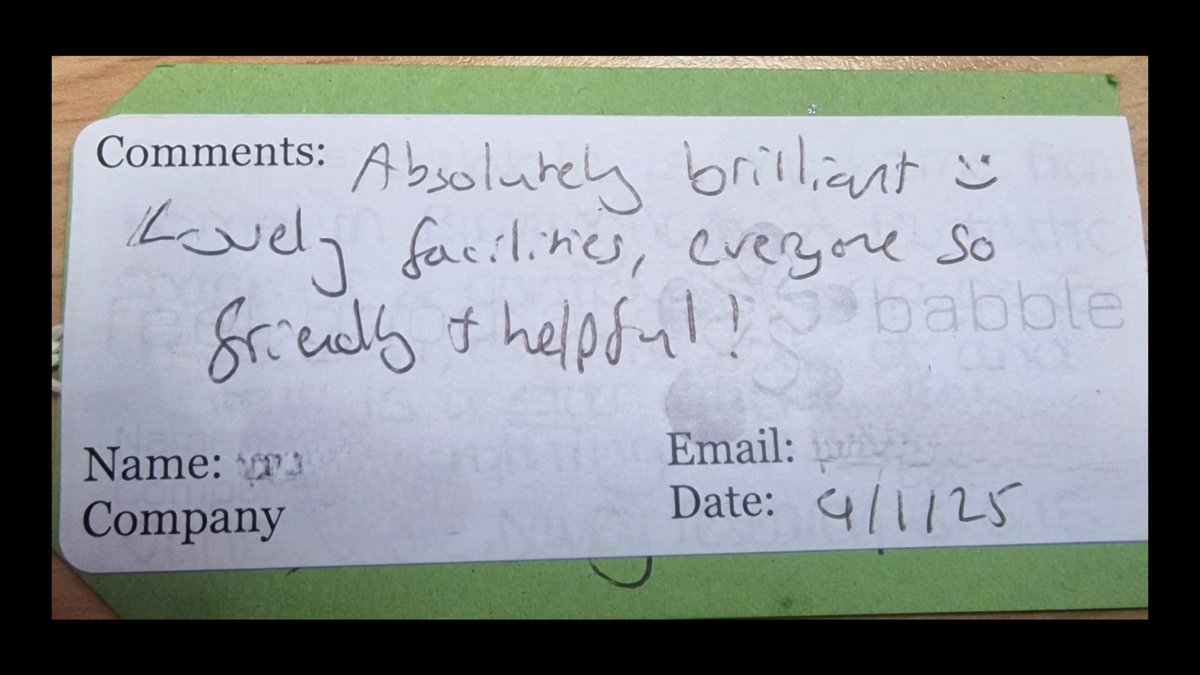 Comments: Absolutely brilliant :)
Lovely facilities, everyone so
friendly + helpful!
babble
Name:
Email:
Company
Date: 9/1/25